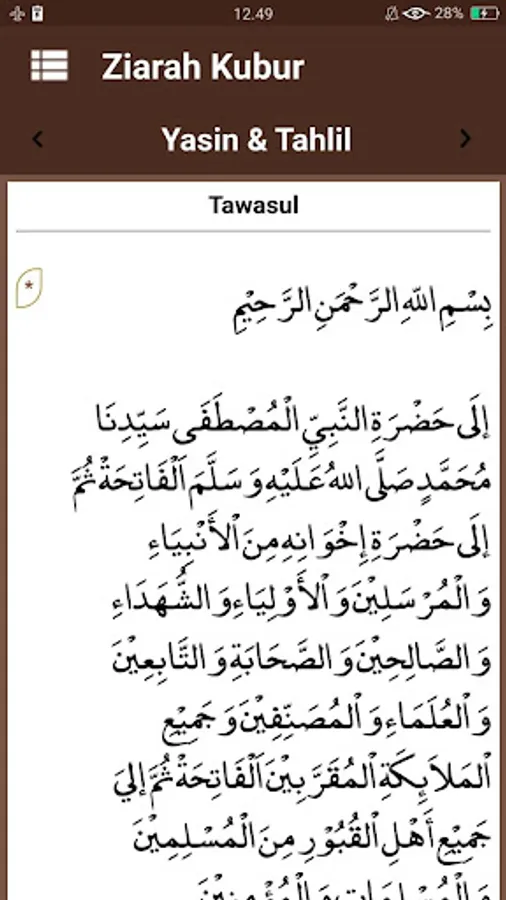 12.49
28%
Ziarah Kubur
Yasin & Tahlil
Tawasul
*
بِسْمِ اللّٰهِ الرَّحْمَنِ الرَّحِيْمِ
إِلَى حَضْرَةِ النَّبِيِّ الْمُصْطَفَى سَيِّدِنَا
مُحَمَّدٍ صَلَّى اللهُ عَلَيْهِ وَسَلَّمَ اَلْفَاتِحَةْ ثُمَّ
إِلَى حَضْرَةِ إِخْوَانِهِ مِنَ الْأَنْبِيَاءِ
وَالْمُرْسَلِيْنَ وَالْأَوْلِيَاءِ وَالشُّهَدَاءِ
وَالصَّالِحِيْنَ وَالصَّحَابَةِ وَالتَّابِعِيْنَ
وَالْعُلَمَاءِ وَالْمُصَنِّفِيْنَ وَجَمِيْعِ
الْمَلَايِٕكَةِ الْمُقَرَّبِيْنَ اَلْفَاتِحَةْ ثُمَّ إِليَ
جَمِيْعِ أَهْلِ الْقُبُوْرِ مِنَ الْمُسْلِمِيْنَ
وَالْمُسْلِمَاتِ وَالْمُؤْمِنِيْنَ